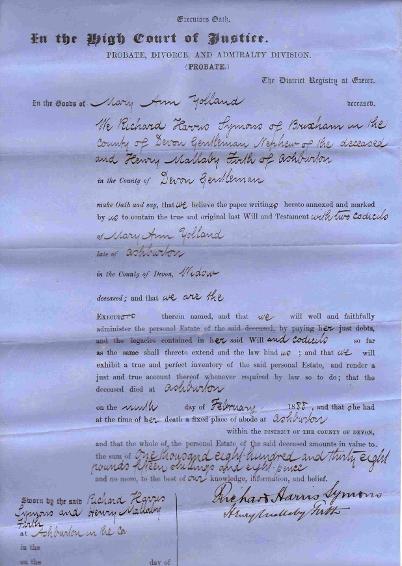 Executors Oath.
In the High Court of Justice.
PROBATE, DIVORCE, AND ADMIRALTY DIVISION.
(PROBATE.)
The District Registry at Exeter.
In the Goods of Mary Ann Yolland deceased.
We Richard Harris Symons of Brixham in the
County of Devon Gentleman Nephew of the deceased
and Henry Mallaby Firth of Ashburton
in the County of Devon Gentleman
make Oath and say, that we believe the paper writings hereto annexed and marked
by us to contain the true and original last Will and Testament with two codicils
of Mary Ann Yolland
late of Ashburton
in the County of Devon, Widow
deceased; and that we are the
EXECUTORS therein named, and that we will well and faithfully
administer the personal Estate of the said deceased, by paying her just debts,
and the legacies contained in her said Will and codicils so far
as the same shall thereto extend and the law bind us; and that we will
exhibit a true and perfect inventory of the said personal Estate, and render a
just and true account thereof whenever required by law so to do; that the
deceased died at Ashburton
on the ninth day of February 1888, and that she had
at the time of her death a fixed place of abode at Ashburton
within the DISTRICT OF THE COUNTY OF DEVON,
and that the whole of the personal Estate of the said deceased amounts in value to
the sum of One thousand eight hundred and thirty eight
pounds fifteen shillings and eight pence
and no more, to the best of our knowledge, information, and belief.
Sworn by the said Richard Harris
Symons and Henry Mallaby
Firth
at Ashburton in the Co
in the
on the day of
Richard Harris Symons
Henry Mallaby Firth